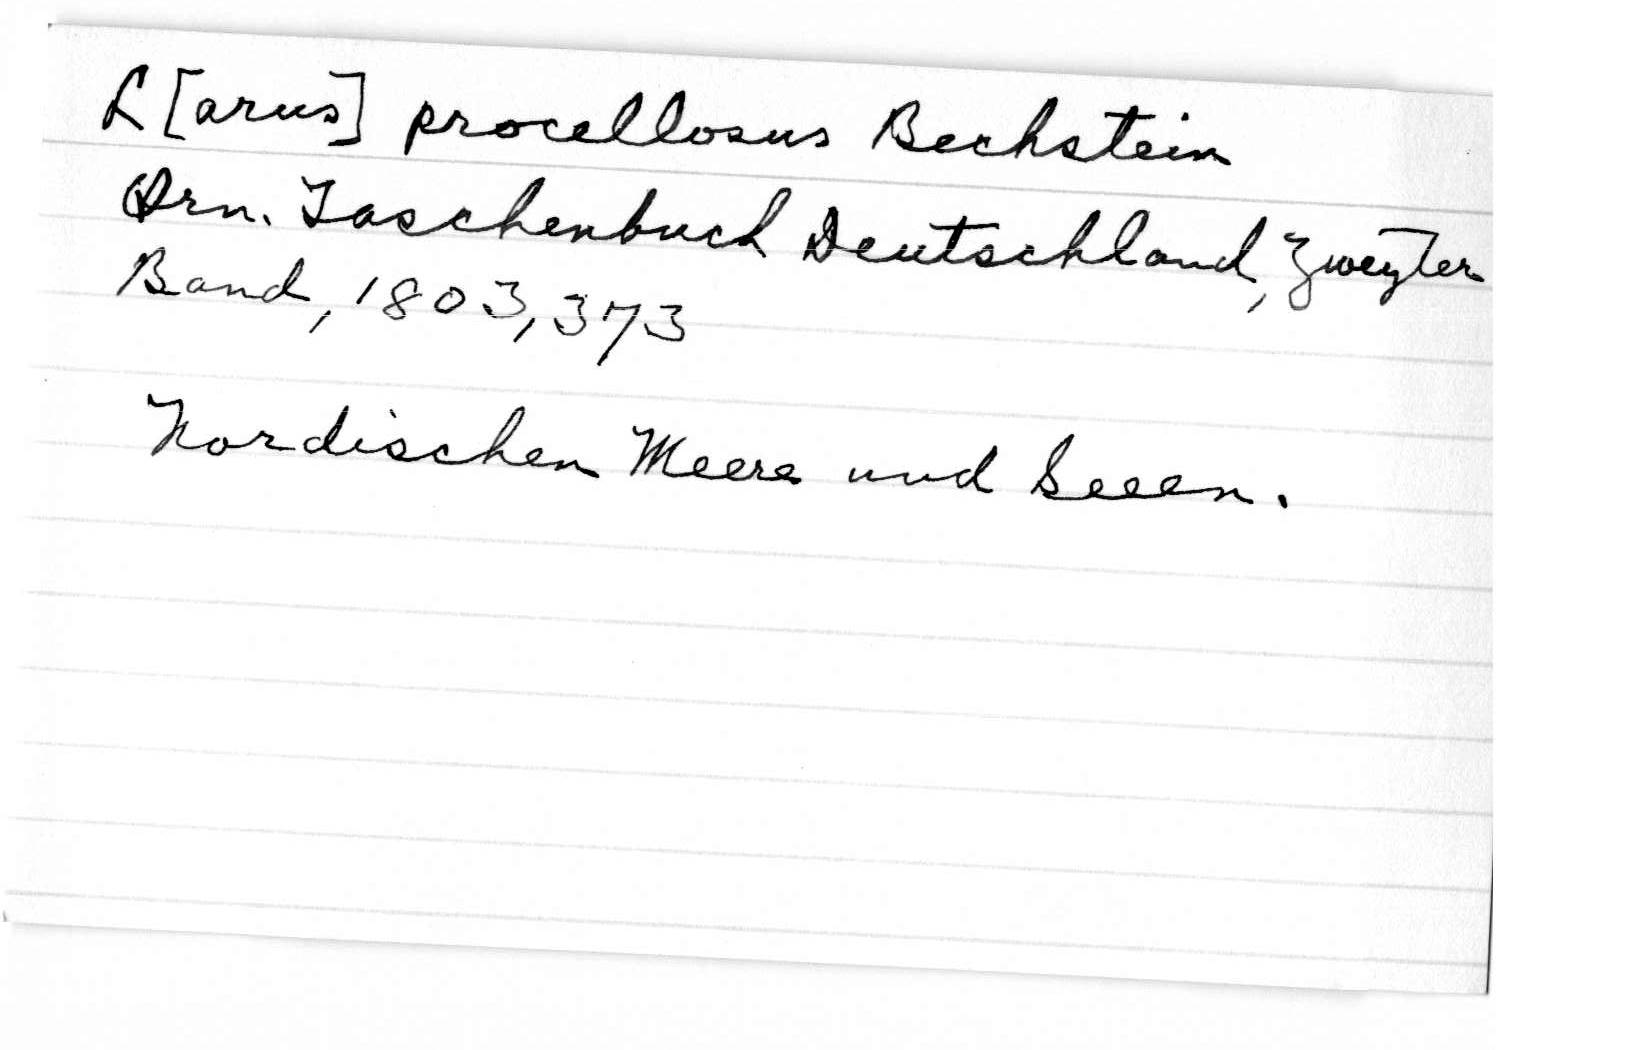 L[arus] procellosus Bechstein
Orn. Taschenbuch Deutschland, Zweyter
Band, 1803, 373
Nordischen Meere und Seeen.